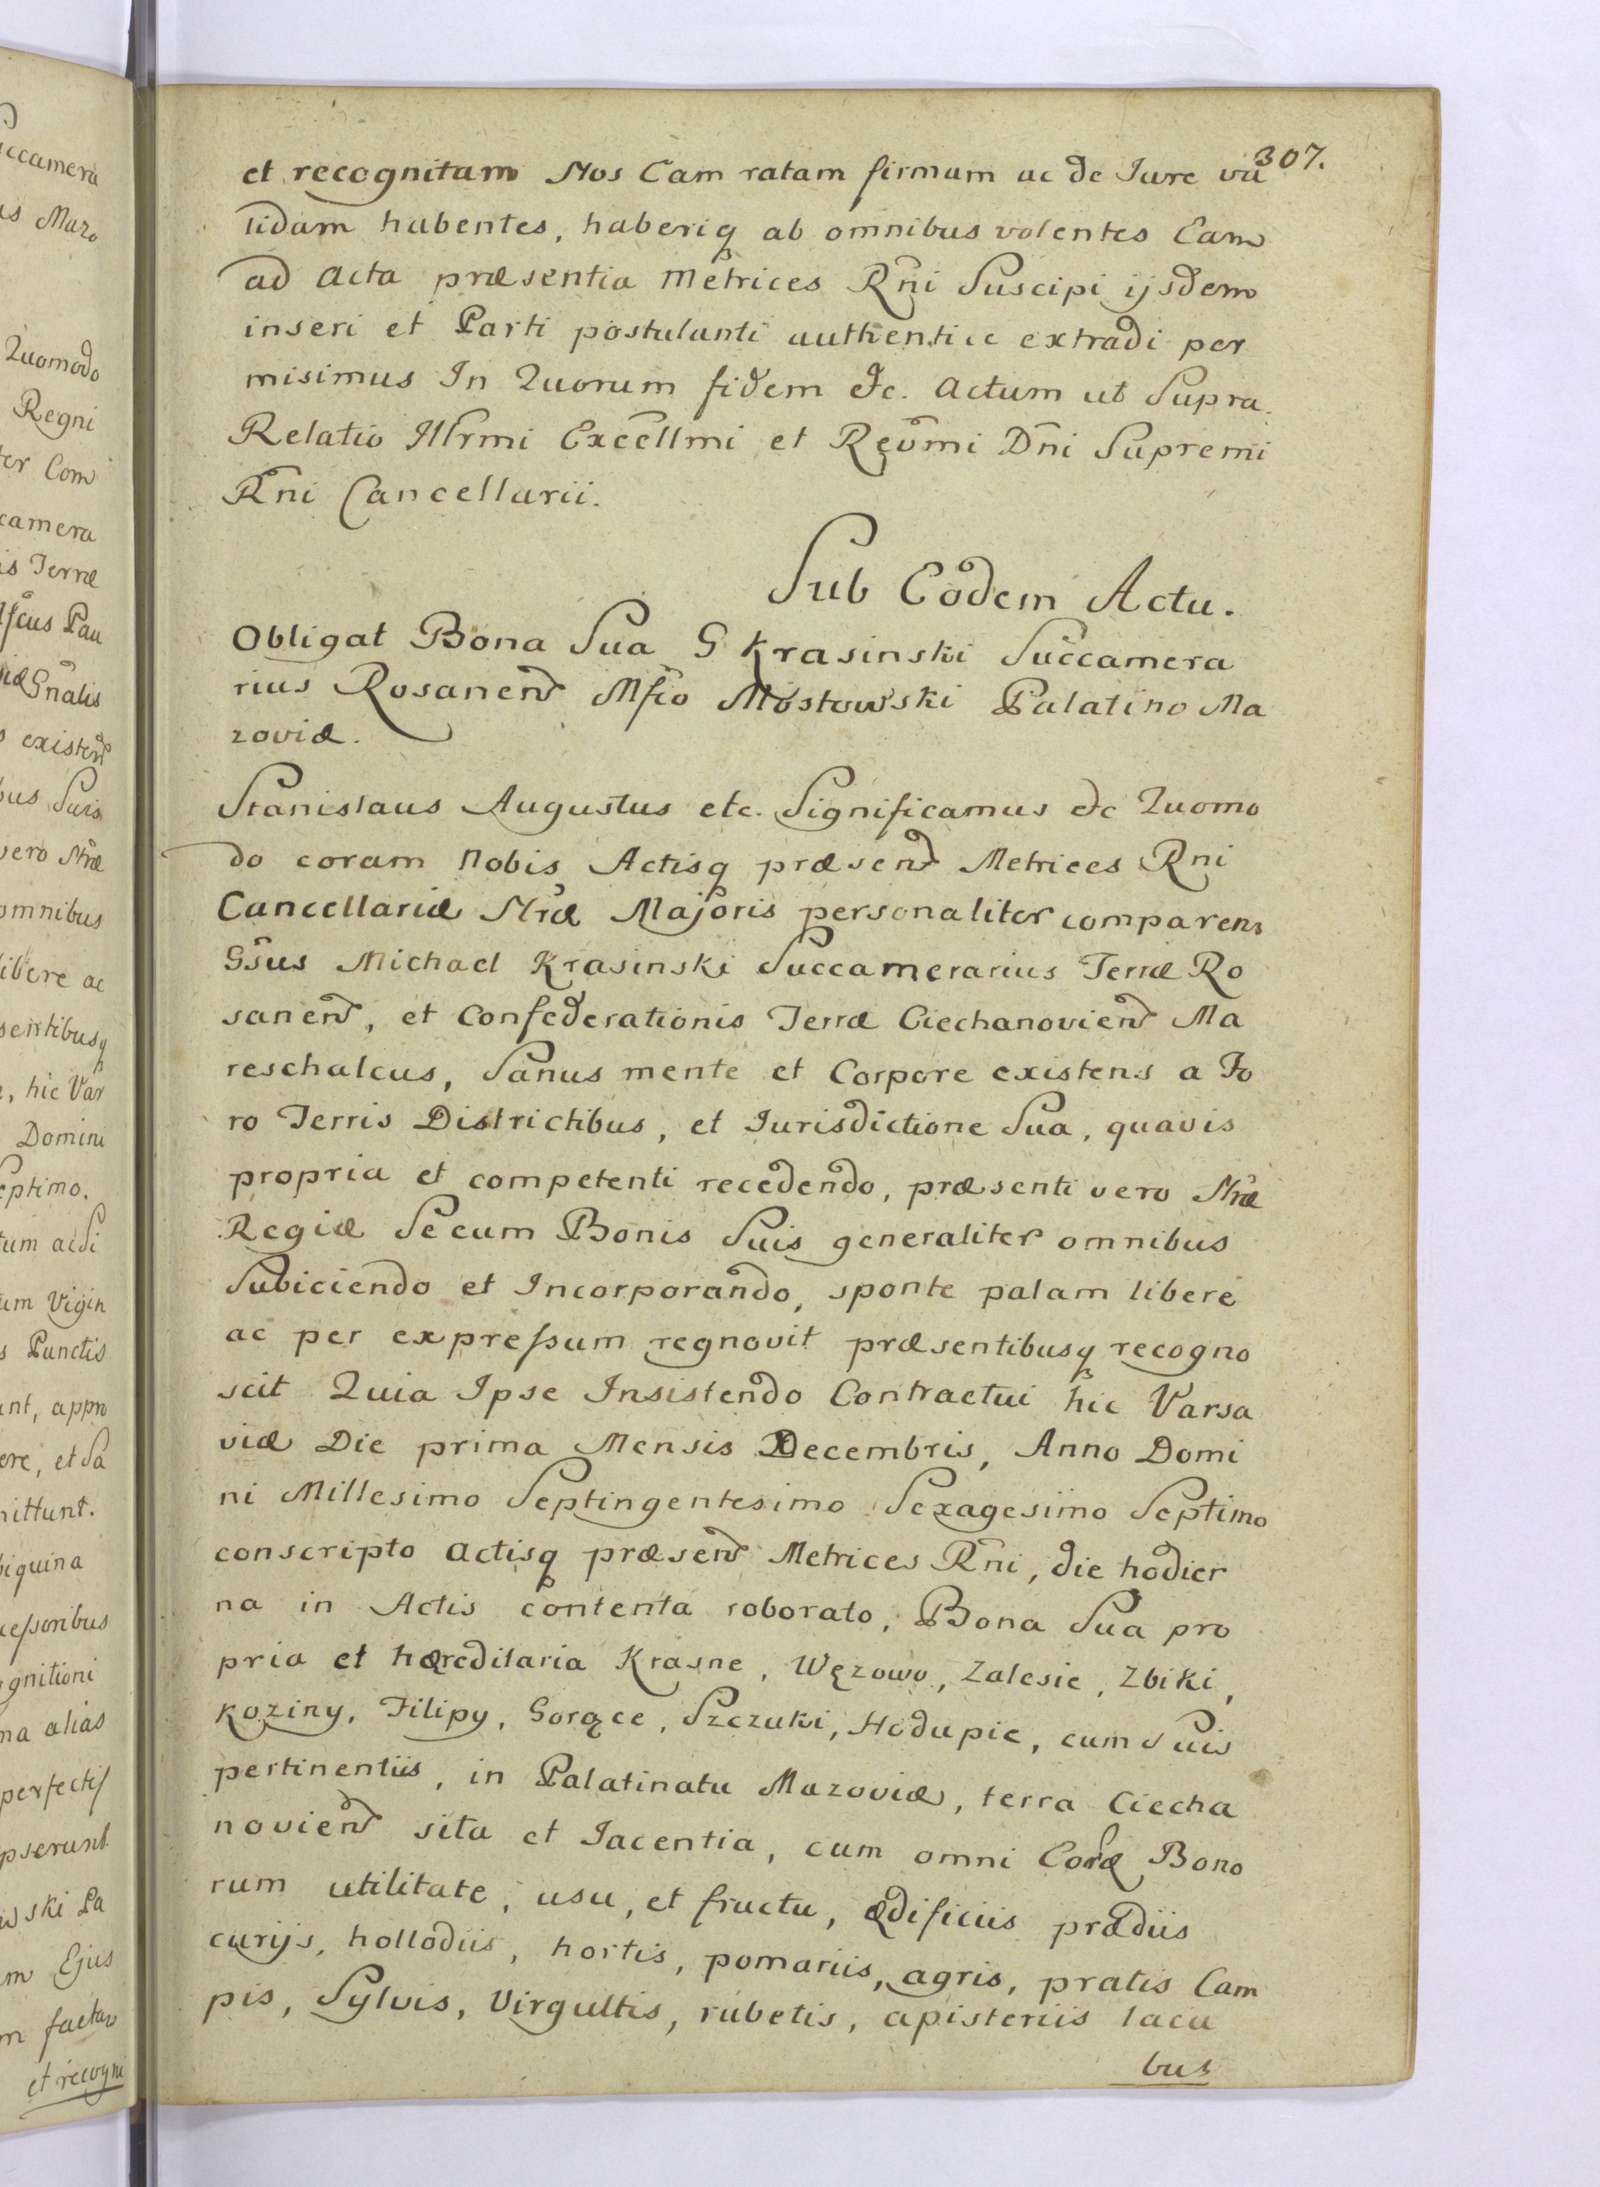 307.
et recognitam Nos Eam ratam firmam ac de Iure va
lidam habentes, haberiq ab omnibus volentes Eam
ad Acta præsentia Metrices Rni Suscipi ijsdem
inseri et Parti postulanti authentice extradi per
misimus In Quorum fidem etc. Actum ut Supra.
Relatio Illrmi Excellmi et Revmi Dni Supremi
Rni Cancellarii.
Sub Eodem Actu.
Obligat Bona Sua G Krasinski Succamera
rius Rosanen Mfco Mostowski Palatino Ma
zoviæ.
Stanislaus Augustus etc. Significamus etc Quomo
do coram Nobis Actisq præsen Metrices Rni
Cancellariæ Nræ Majoris personaliter comparens
Gsus Michael Krasinski Succamerarius Terræ Ro
sanen, et Confederationis Terræ Ciechanovien Ma
reschalcus, Sanus mente et Corpore existens a Fo
ro Terris Districtibus, et Iurisdictione Sua, quavis
propria et competenti recedendo, præsenti vero Nræ
Regiæ Se cum Bonis Suis generaliter omnibus
Subiciendo et Incorporando, sponte palam libere
ac per expressum regnovit præsentibusq recogno
scit Quia Ipse Insistendo Contractui hic Varsa
viæ Die prima Mensis Decembris, Anno Domi
ni Millesimo Septingentesimo Sexagesimo Septimo
conscripto Actisq præsen Metrices Rni, die hodier
na in Actis contenta roborato, Bona Sua pro
pria et hæreditaria Krasne, Węzowo, Zalesie, Zbiki,
Koziny, Filipy, Gorące, Szczuki, Hodupie, cum Suis
pertinentiis, in Palatinatu Mazoviæ, terra Ciecha
novien sita et Iacentia, cum omni Eordæ Bono
rum utilitate, usu, et fructu, ædificiis prædiis
curijs, hollodiis, hortis, pomariis, agris, pratis Cam
pis, Sylvis, Virgultis, rubetis, apisteriis lacu
bus